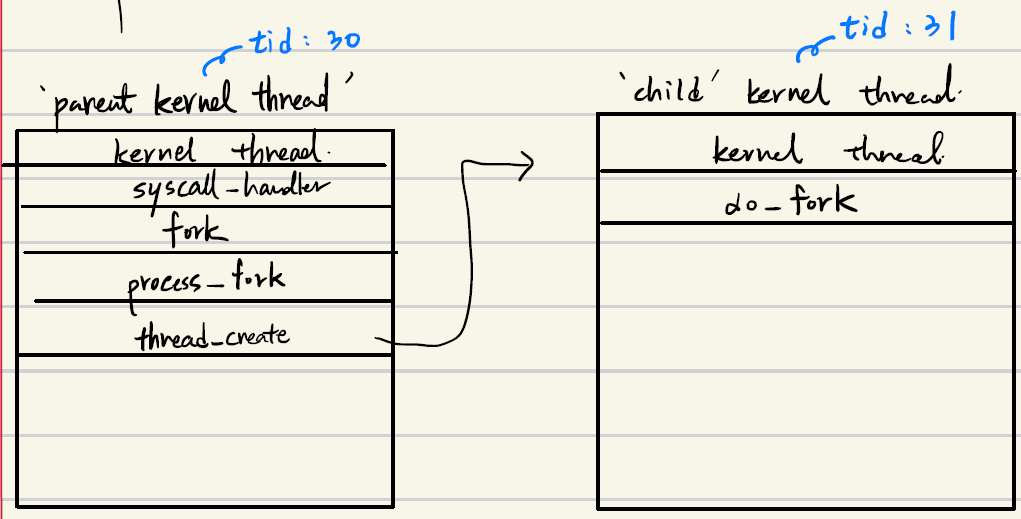 tid : 30
'parent kernel thread'
kernel thread.
syscall-handler
fork
process_fork
thread_create
tid : 31
'child' kernel thread.
kernel thread.
do_fork